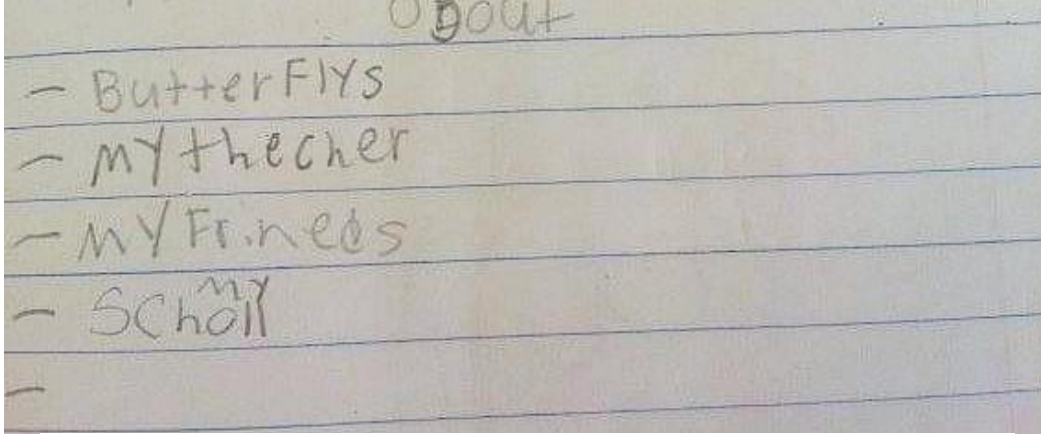 obout
- ButterFlYs
- MY thecher
- MY Frineds
- SCholl MY
-